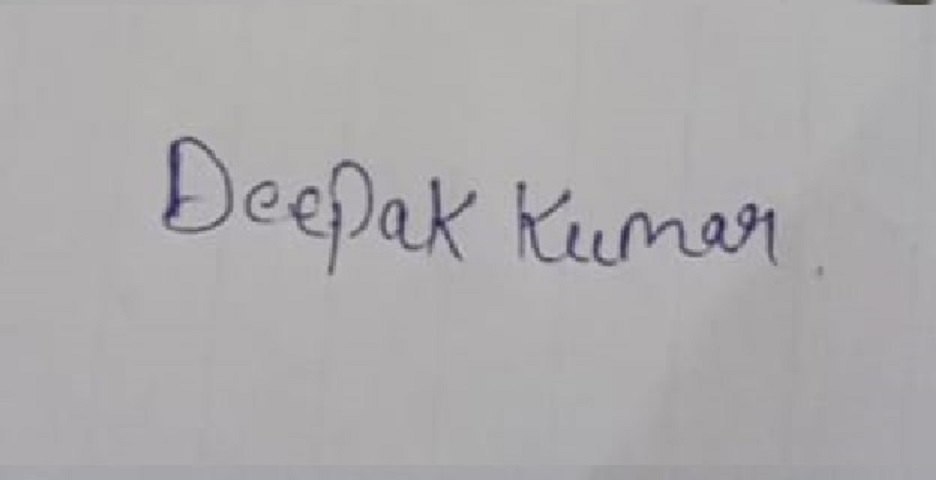 Deepak Kumar.